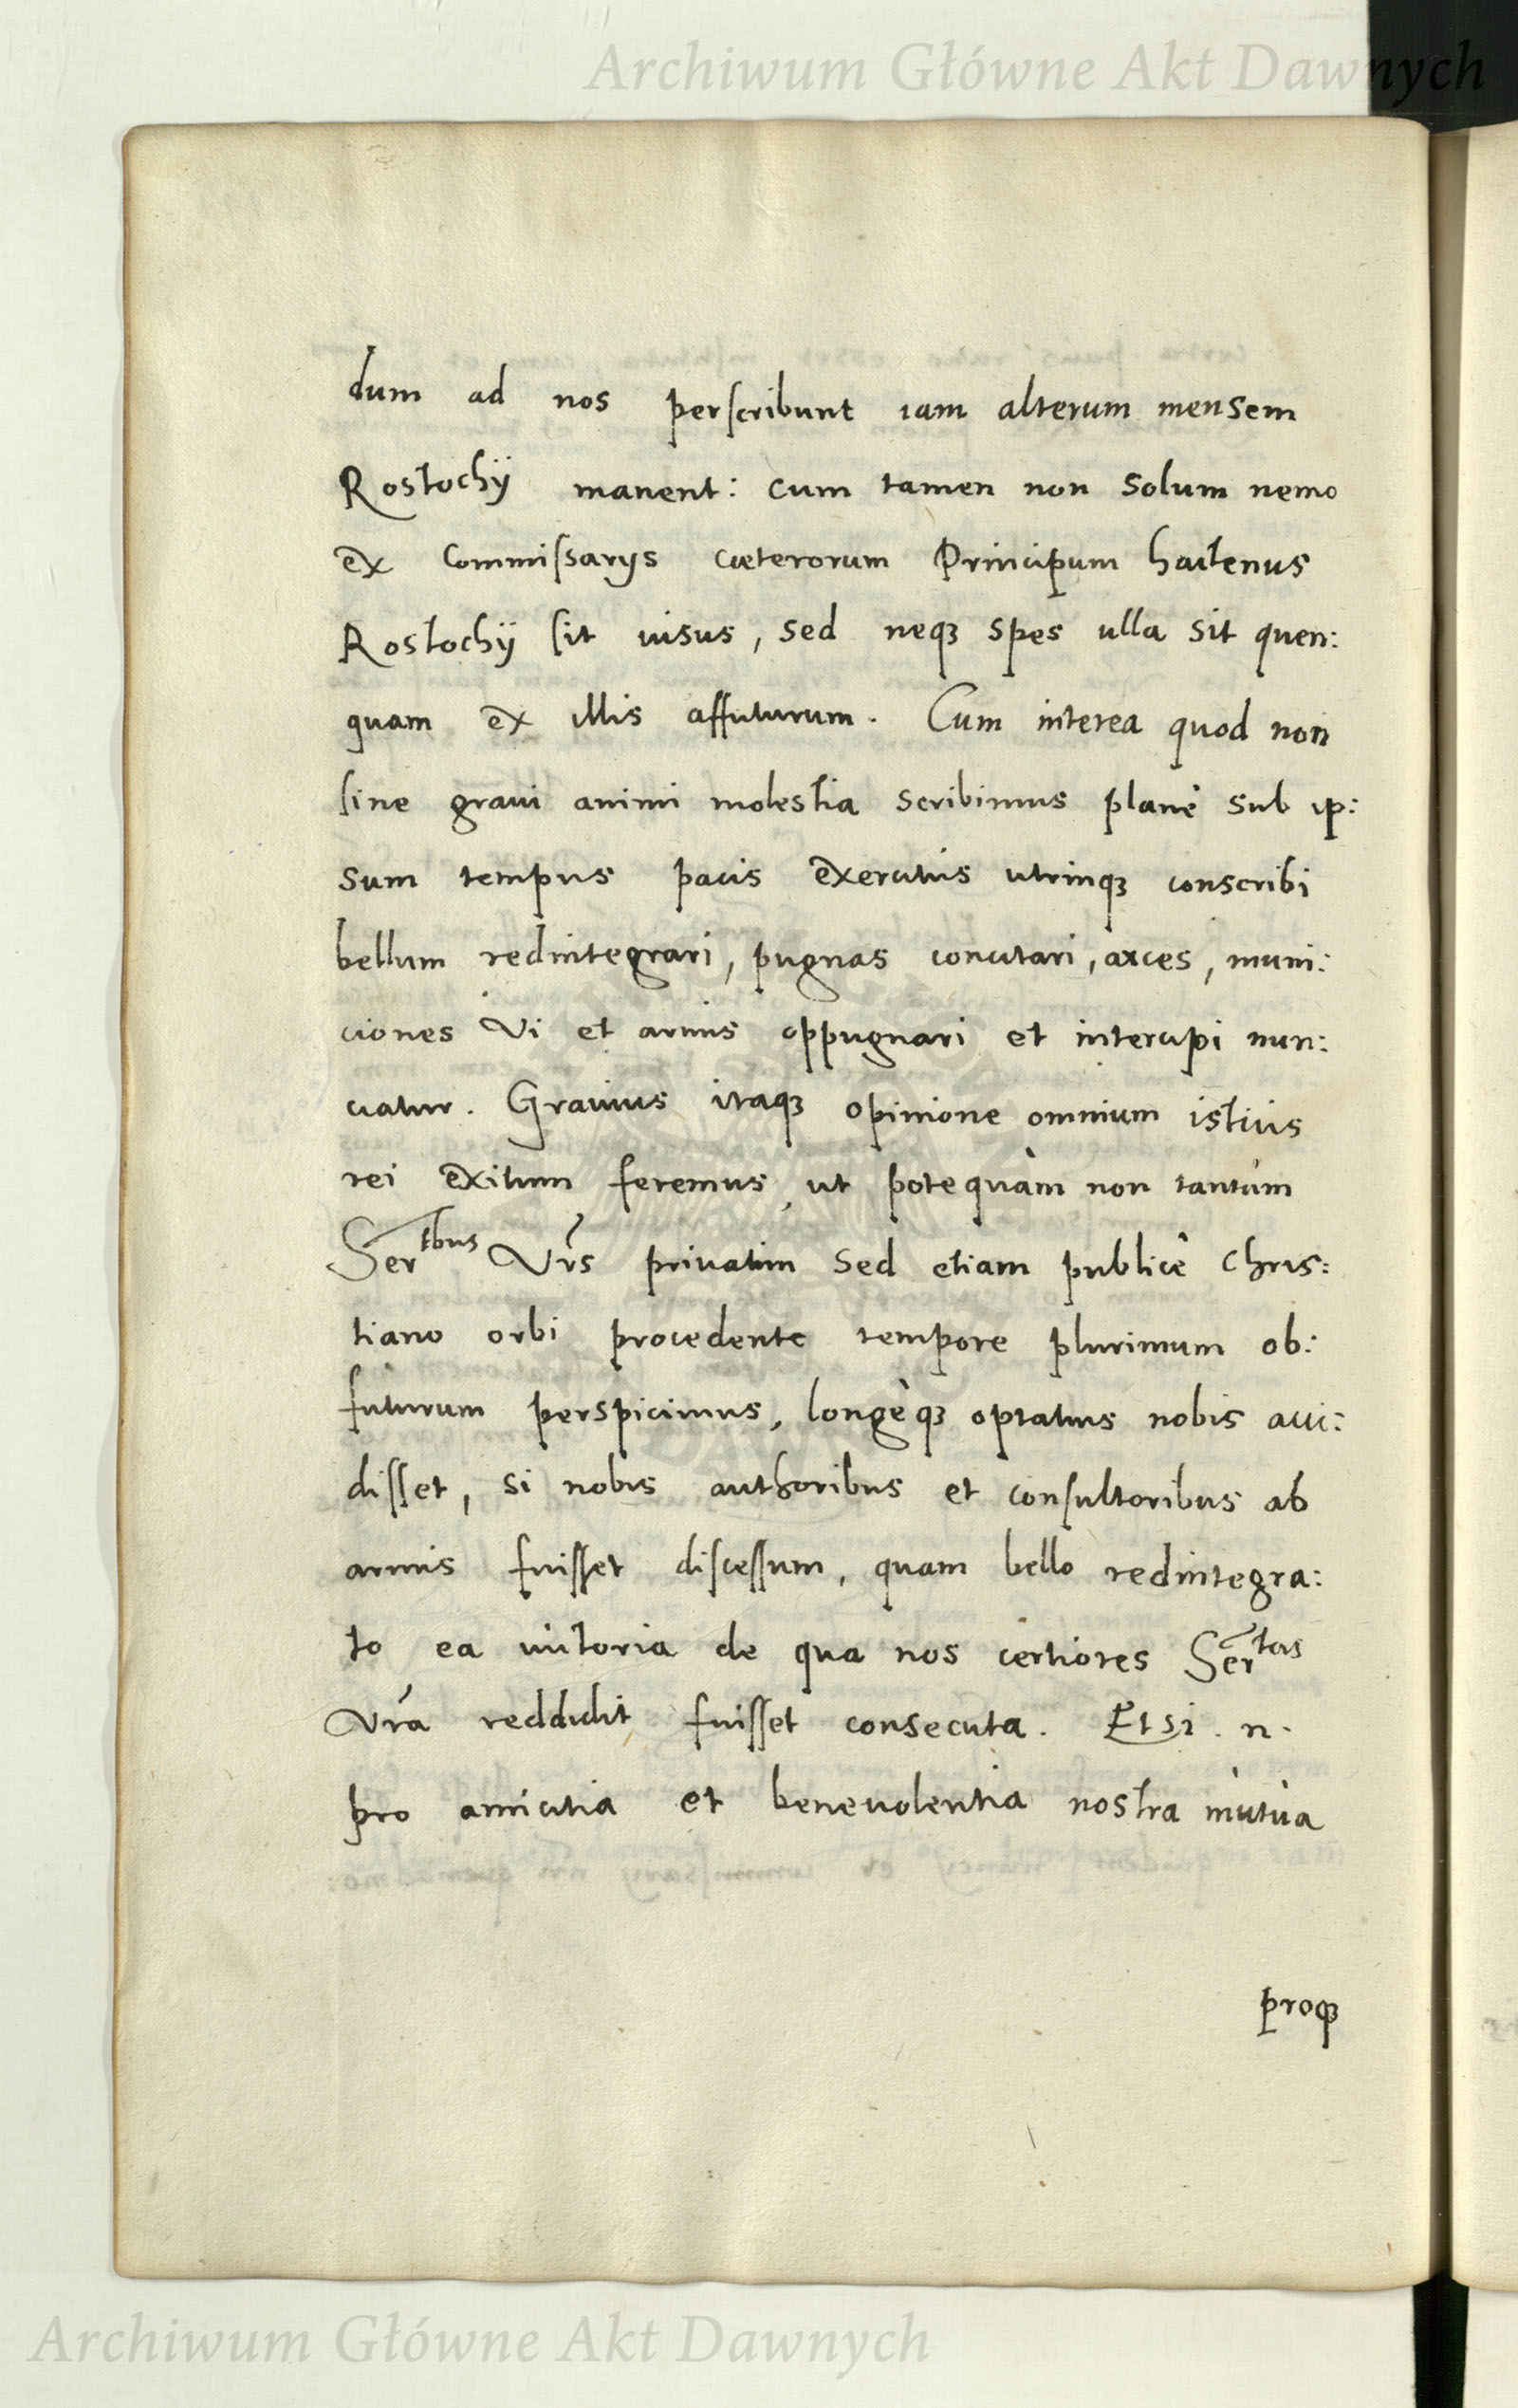 Archiwum Główne Akt Dawnych
dum ad nos perscribunt iam alterum mensem
Rostochÿ manent: cum tamen non solum nemo
ex Commissarÿs cæterorum Principum hactenus
Rostochÿ sit uisus, sed neqꝫ spes ulla sit quen:
quam ex illis affuturum. Cum interea quod non
sine graui animi molestia scribimus planè sub ip:
sum tempus pacis exercitus utrinqꝫ conscribi
bellum redintegrari, pugnas concitari, arces, muni:
ciones vi et armis oppugnari et intercipi nun:
ciatur. Grauius itaqꝫ opinione omnium istius
rei exitum feremus, ut potequàm non tantùm
Ser^tbus Vrs priuatim sed etiam publicè Chris:
tiano orbi procedente tempore plurimum ob:
futurum perspicimus, longèqꝫ optatius nobis acci:
disset, si nobis authoribus et consultoribus ab
armis fuisset discessum, quam bello redintegra:
to ea uictoria de qua nos certiores Ser^tas
Vra reddidit fuisset consecuta. Etsi .n.
pro amicitia et beneuolentia nostra mùtùa
proqꝫ
Archiwum Główne Akt Dawnych